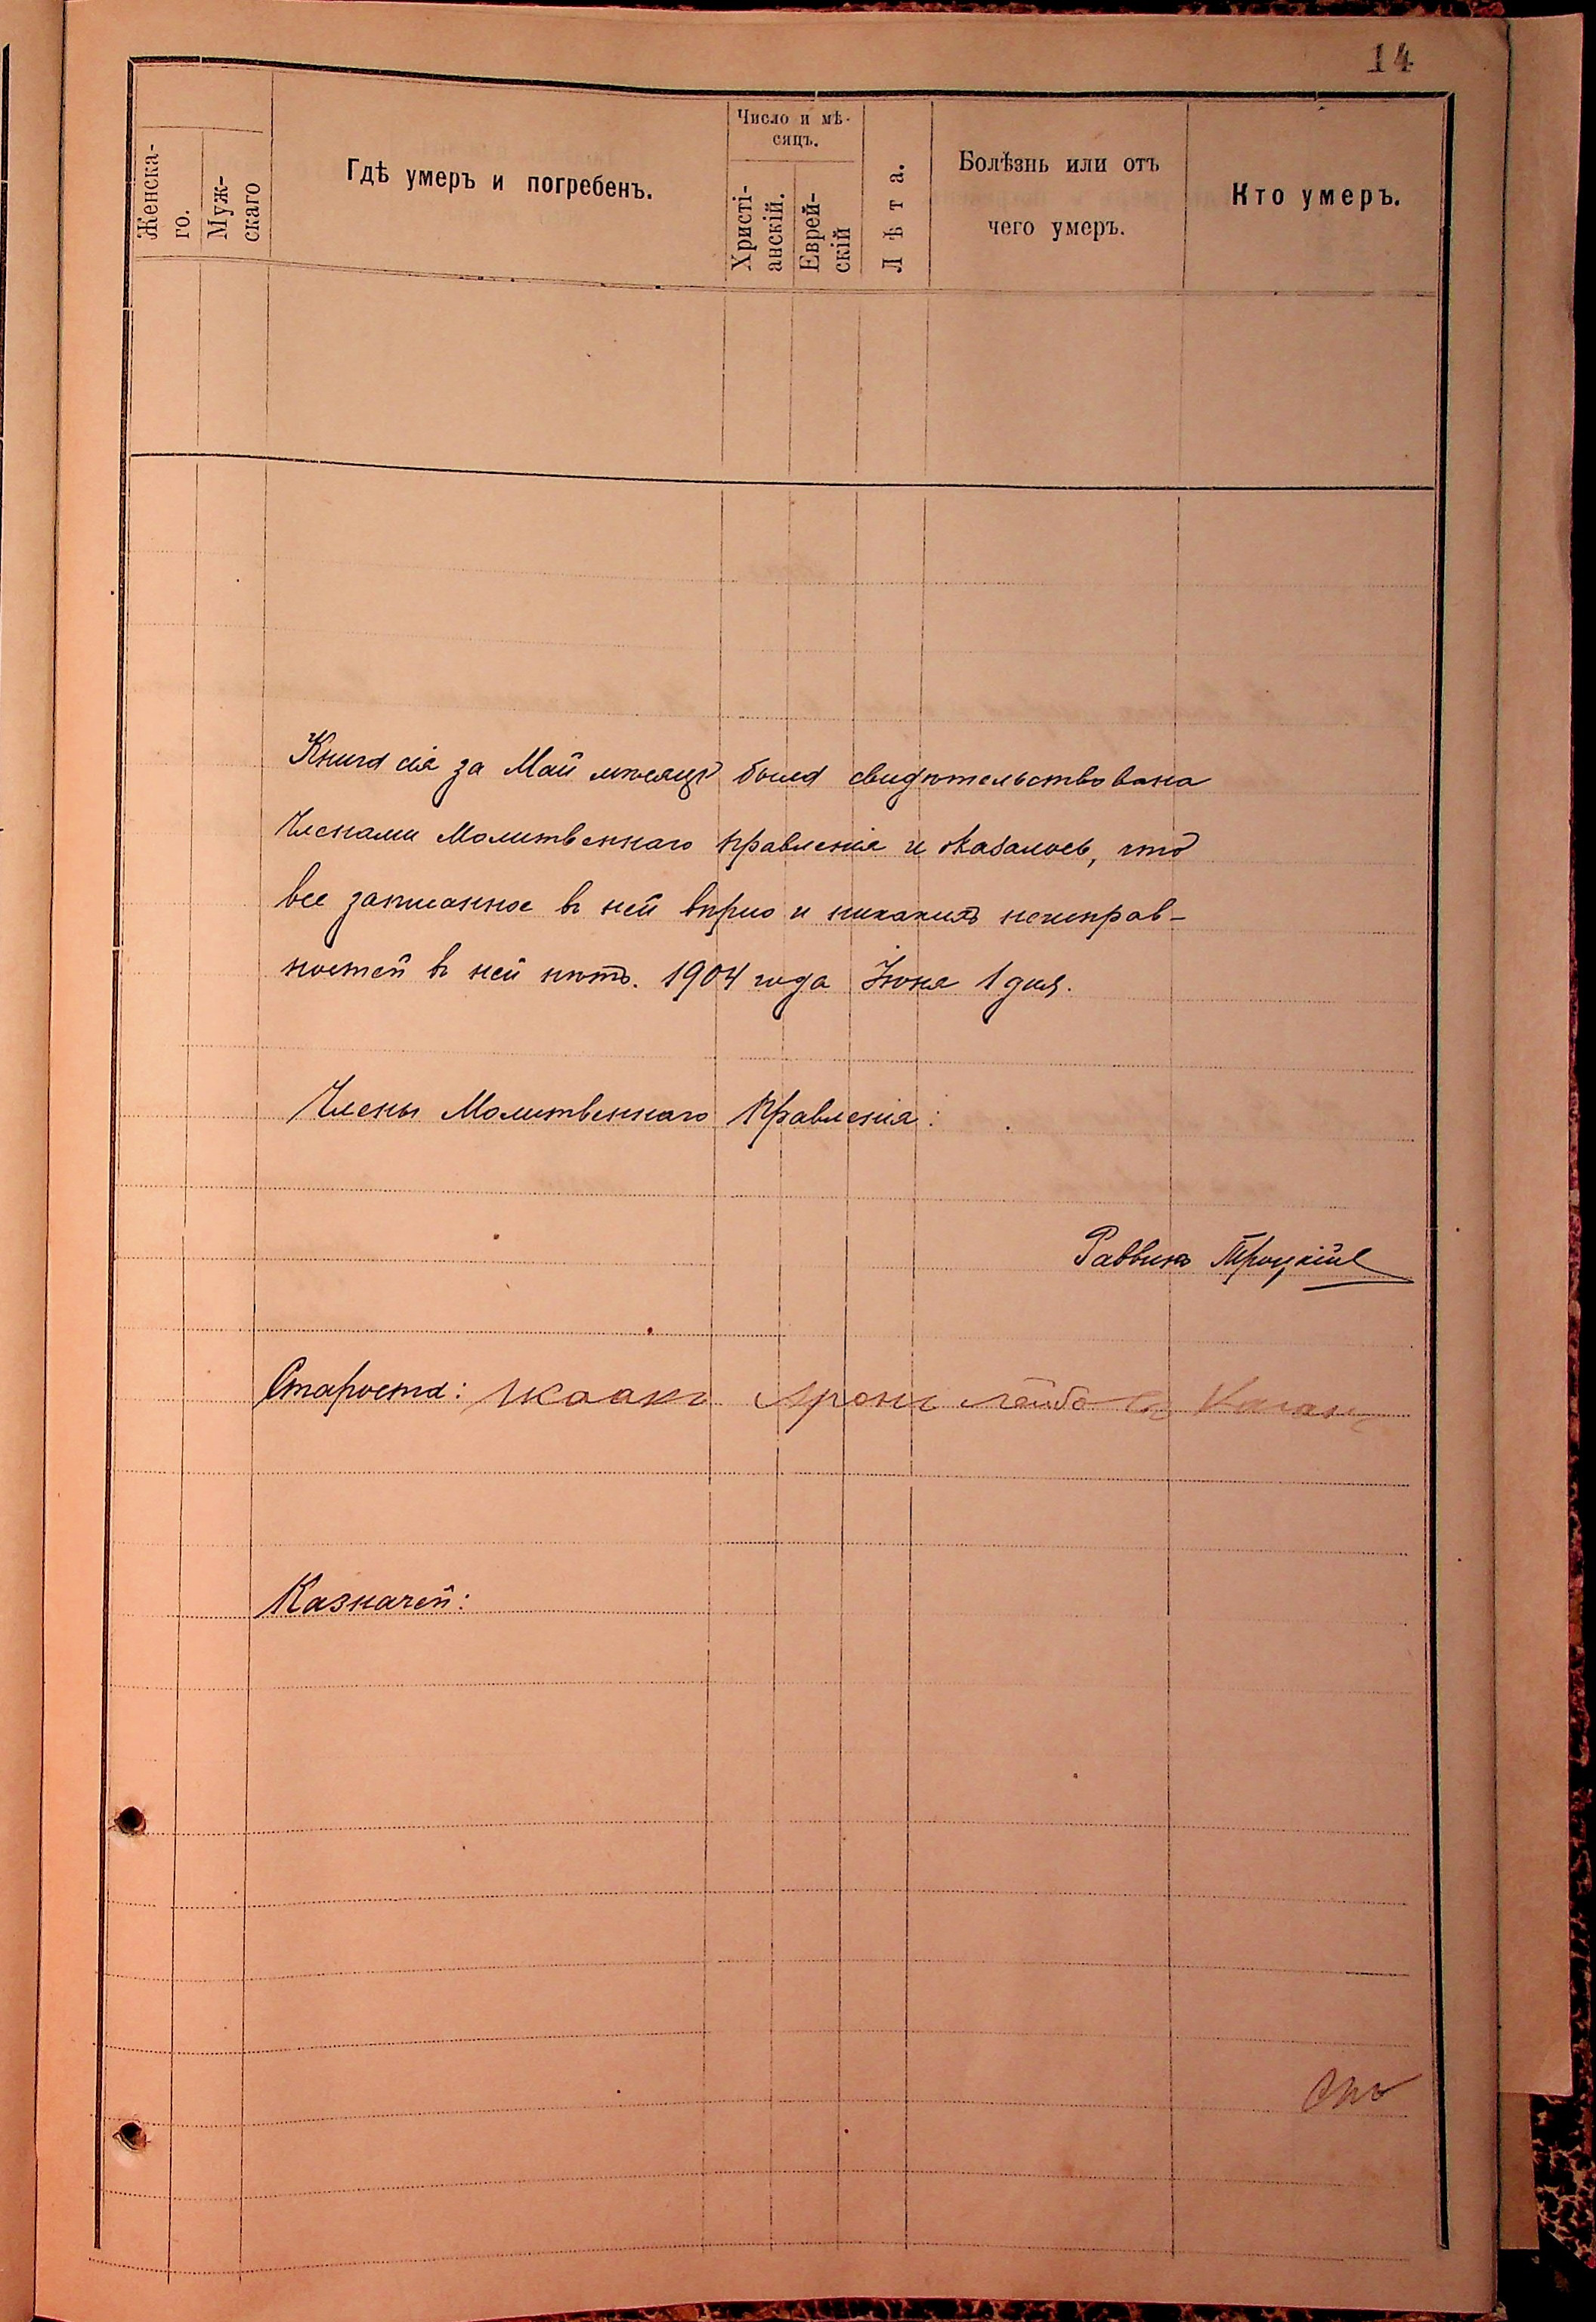 14
Женска-
го.
Муж-
скаго
Гдѣ умеръ и погребенъ.
Число и мѣ-
сяцъ.
Христі-
анскій.
Еврей-
скій
Лѣта.
Болѣзнь или отъ
чего умеръ.
Кто умеръ.
Книга сія за Май мѣсяцъ была свидѣтельствована
Членами Молитвеннаго Правленія и оказалось, что
все записанное въ ней вѣрно и никакихъ неисправ-
ностей въ ней нѣтъ. 1904 года Іюня 1 дня.
Члены Молитвеннаго Правленія:
Раввинъ Троцкій
Староста: Аронъ Каганъ
Казначей: